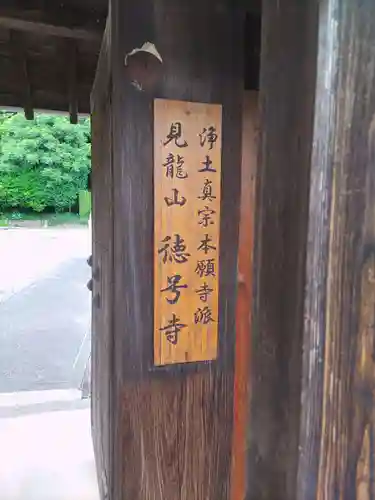 浄土真宗本願寺派
見龍山徳号寺